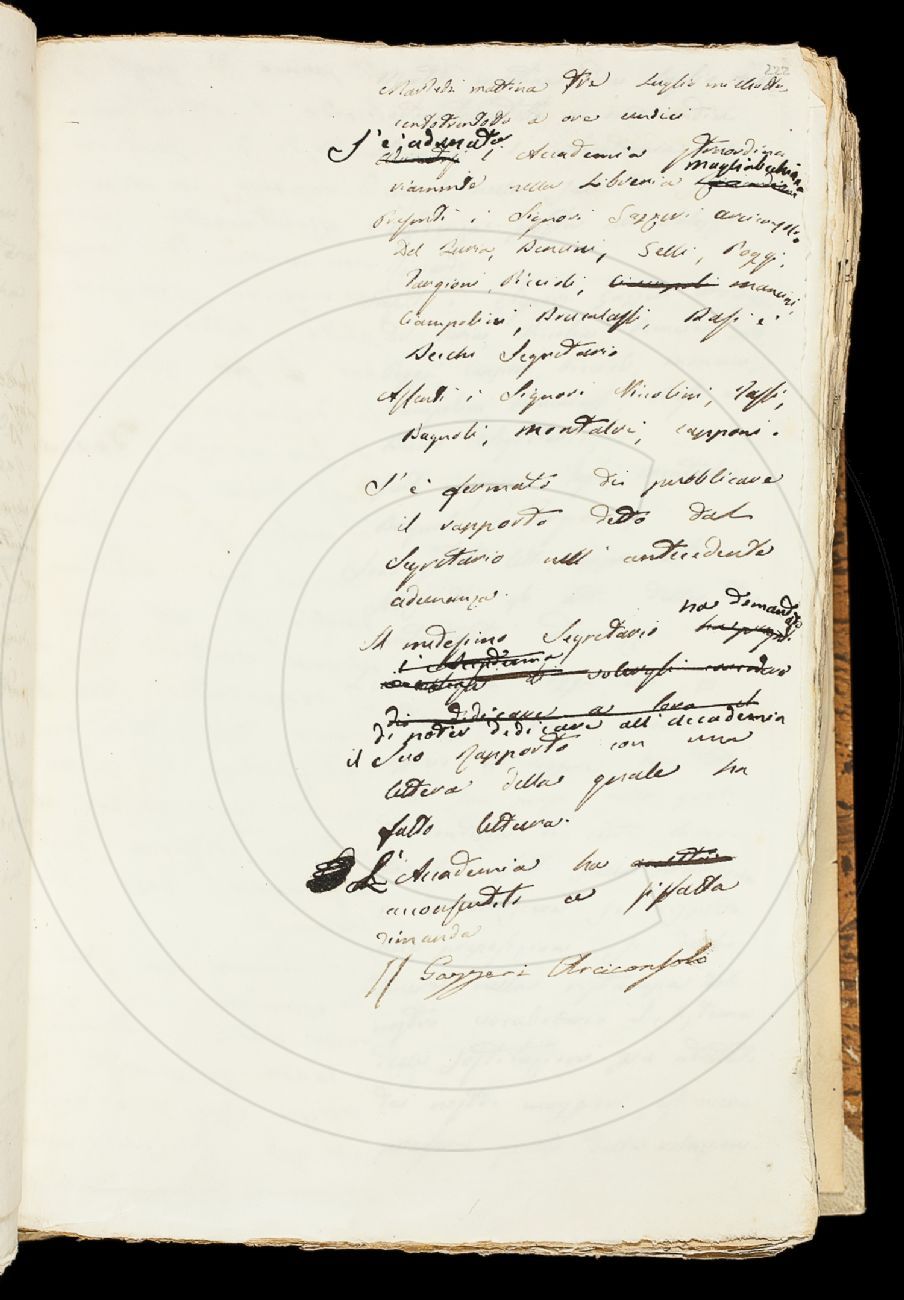 222
Martedi mattina tre Luglio mille otto
cento trentotto a ore undici
S'è adunata
l'Accademia straordina
Magliabechiana
riamente nella Libreria
Presenti i Signori Gazzeri arciconsolo
Del Furia, Bencini, Gelli, Poggi,
Targioni, Riccioli, mancini,
Ciampolini, Brucalassi, Basi e
Becchi Segretario
Assenti i Signori Niccolini, Tassi,
Bagnoli, Montalvi, Capponi.
S'è fermato di pubblicare
il rapporto detto dal
Segretario nell'antecedente
adunanza.
ha domandato
Il medesimo Segretario
di poter dedicare all'Accademia
il Suo Rapporto con una
lettera della quale ha
fatto lettura.
L'Accademia ha
acconsentito a siffatta
dimanda
// Gazzeri Arciconsolo